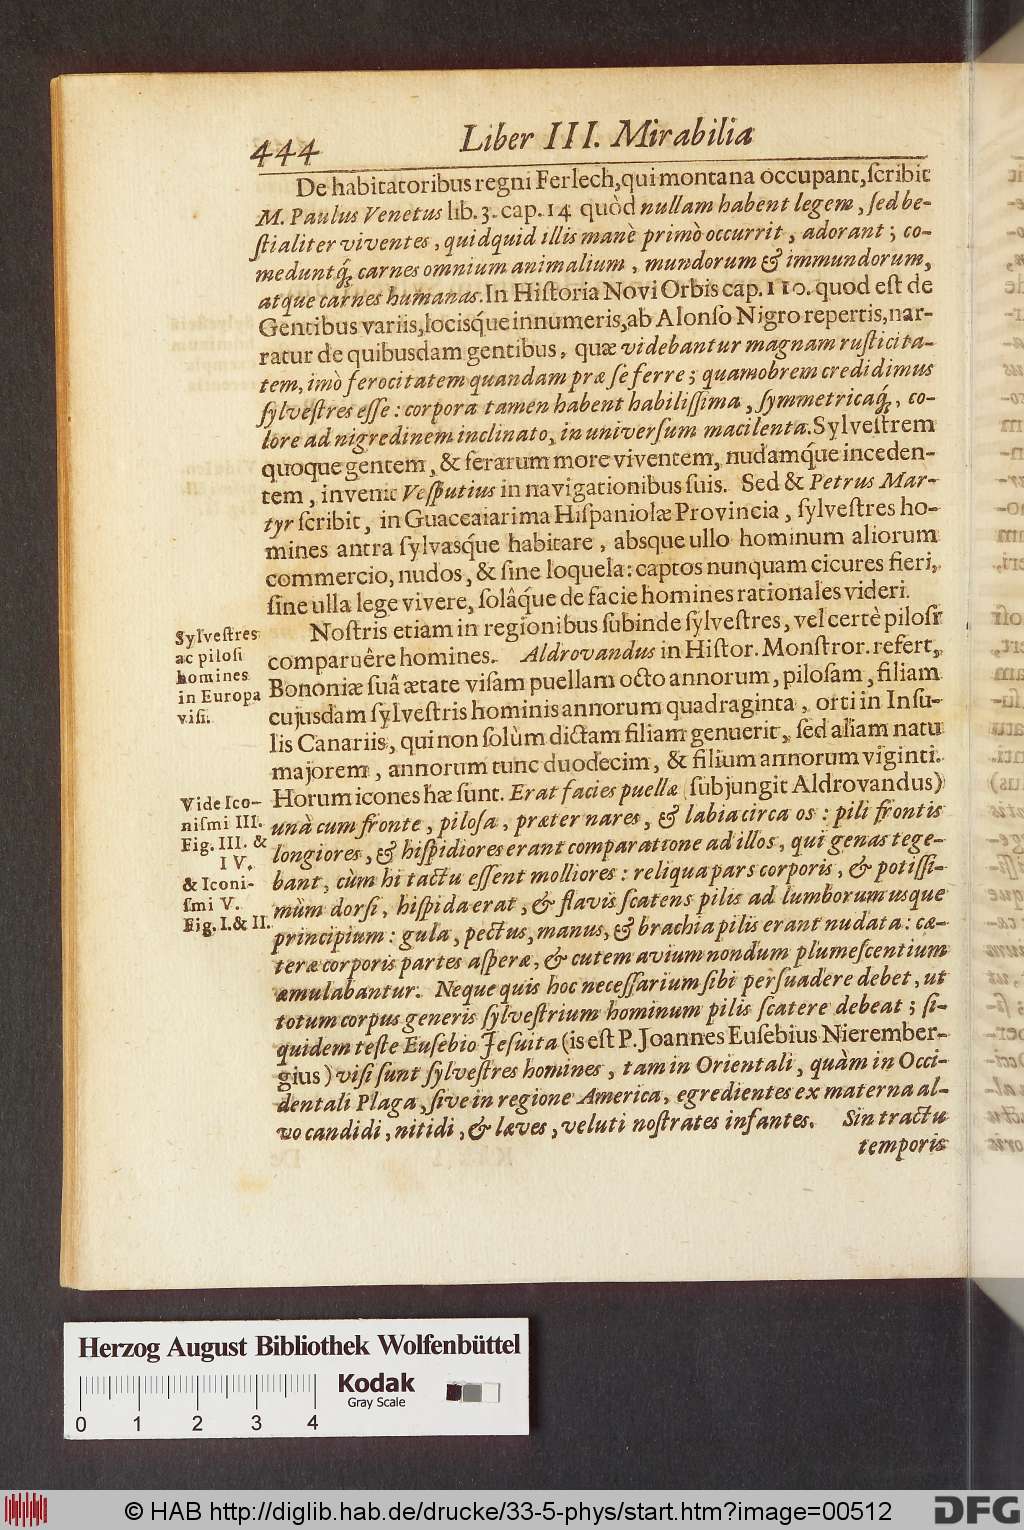 444
Liber III. Mirabilia
De habitatoribus regni Ferlech, qui montana occupant, ſcribit
M. Paulus Venetus lib. 3. cap. 14 quòd nullam habent legem, ſed be-
ſtialiter viventes, quidquid illis manè primò occurrit, adorant; co-
meduntq́; carnes omnium animalium, mundorum & immundorum,
atque carnes humanas. In Hiſtoria Novi Orbis cap. 110. quod eſt de
Gentibus variis, locisq́ue innumeris, ab Alonſo Nigro repertis, nar-
ratur de quibusdam gentibus, quæ videbantur magnam ruſticita-
tem, imò ferocitatem quandam præ ſe ferre; quamobrem credidimus
ſylveſtres eſſe: corpora tamen habent habiliſſima, ſymmetricaq́;, co-
lore ad nigredinem inclinato, in univerſum macilenta. Sylveſtrem
quoque gentem, & ferarum more viventem, nudamq́ue inceden-
tem, invenit Veſputius in navigationibus ſuis. Sed & Petrus Mar-
tyr ſcribit, in Guaccaiarima Hiſpaniolæ Provincia, ſylveſtres ho-
mines antra ſylvasq́ue habitare, absque ullo hominum aliorum
commercio, nudos, & ſine loquela: captos nunquam cicures fieri,
ſine ulla lege vivere, ſolâq́ue de facie homines rationales videri.
Noſtris etiam in regionibus ſubinde ſylveſtres, vel certè piloſi
comparuêre homines. Aldrovandus in Hiſtor. Monſtror. refert,
Bononiæ ſuâ ætate viſam puellam octo annorum, piloſam, filiam
cujusdam ſylveſtris hominis annorum quadraginta, orti in Inſu-
lis Canariis, qui non ſolùm dictam filiam genuerit, ſed aliam natu
majorem, annorum tunc duodecim, & filium annorum viginti.
Horum icones hæ ſunt. Erat facies puellæ (ſubjungit Aldrovandus)
unà cum fronte, piloſa, præter nares, & labia circa os: pili frontis
longiores, & hiſpidiores erant comparatione ad illos, qui genas tege-
bant, cùm hi tactu eſſent molliores: reliqua pars corporis, & potiſſi-
mùm dorſi, hiſpida erat, & flavis ſcatens pilis ad lumborum usque
principium: gula, pectus, manus, & brachia pilis erant nudata: cæ-
teræ corporis partes aſperæ, & cutem avium nondum plumeſcentium
æmulabantur. Neque quis hoc neceſſarium ſibi perſuadere debet, ut
totum corpus generis ſylveſtrium hominum pilis ſcatere debeat; ſi-
quidem teſte Euſebio Jeſuita (is eſt P. Joannes Euſebius Nierember-
gius) viſi ſunt ſylveſtres homines, tam in Orientali, quàm in Occi-
dentali Plaga, ſive in regione America, egredientes ex materna al-
vo candidi, nitidi, & læves, veluti noſtrates infantes. Sin tractu
temporis
Sylveſtres
ac piloſi
homines
in Europa
viſi.
Vide Ico-
niſmi III.
Fig. III. &
IV.
& Iconi-
ſmi V.
Fig. I. & II.
Herzog August Bibliothek Wolfenbüttel
Kodak
Gray Scale
0 1 2 3 4
© HAB http://diglib.hab.de/drucke/33-5-phys/start.htm?image=00512
DFG